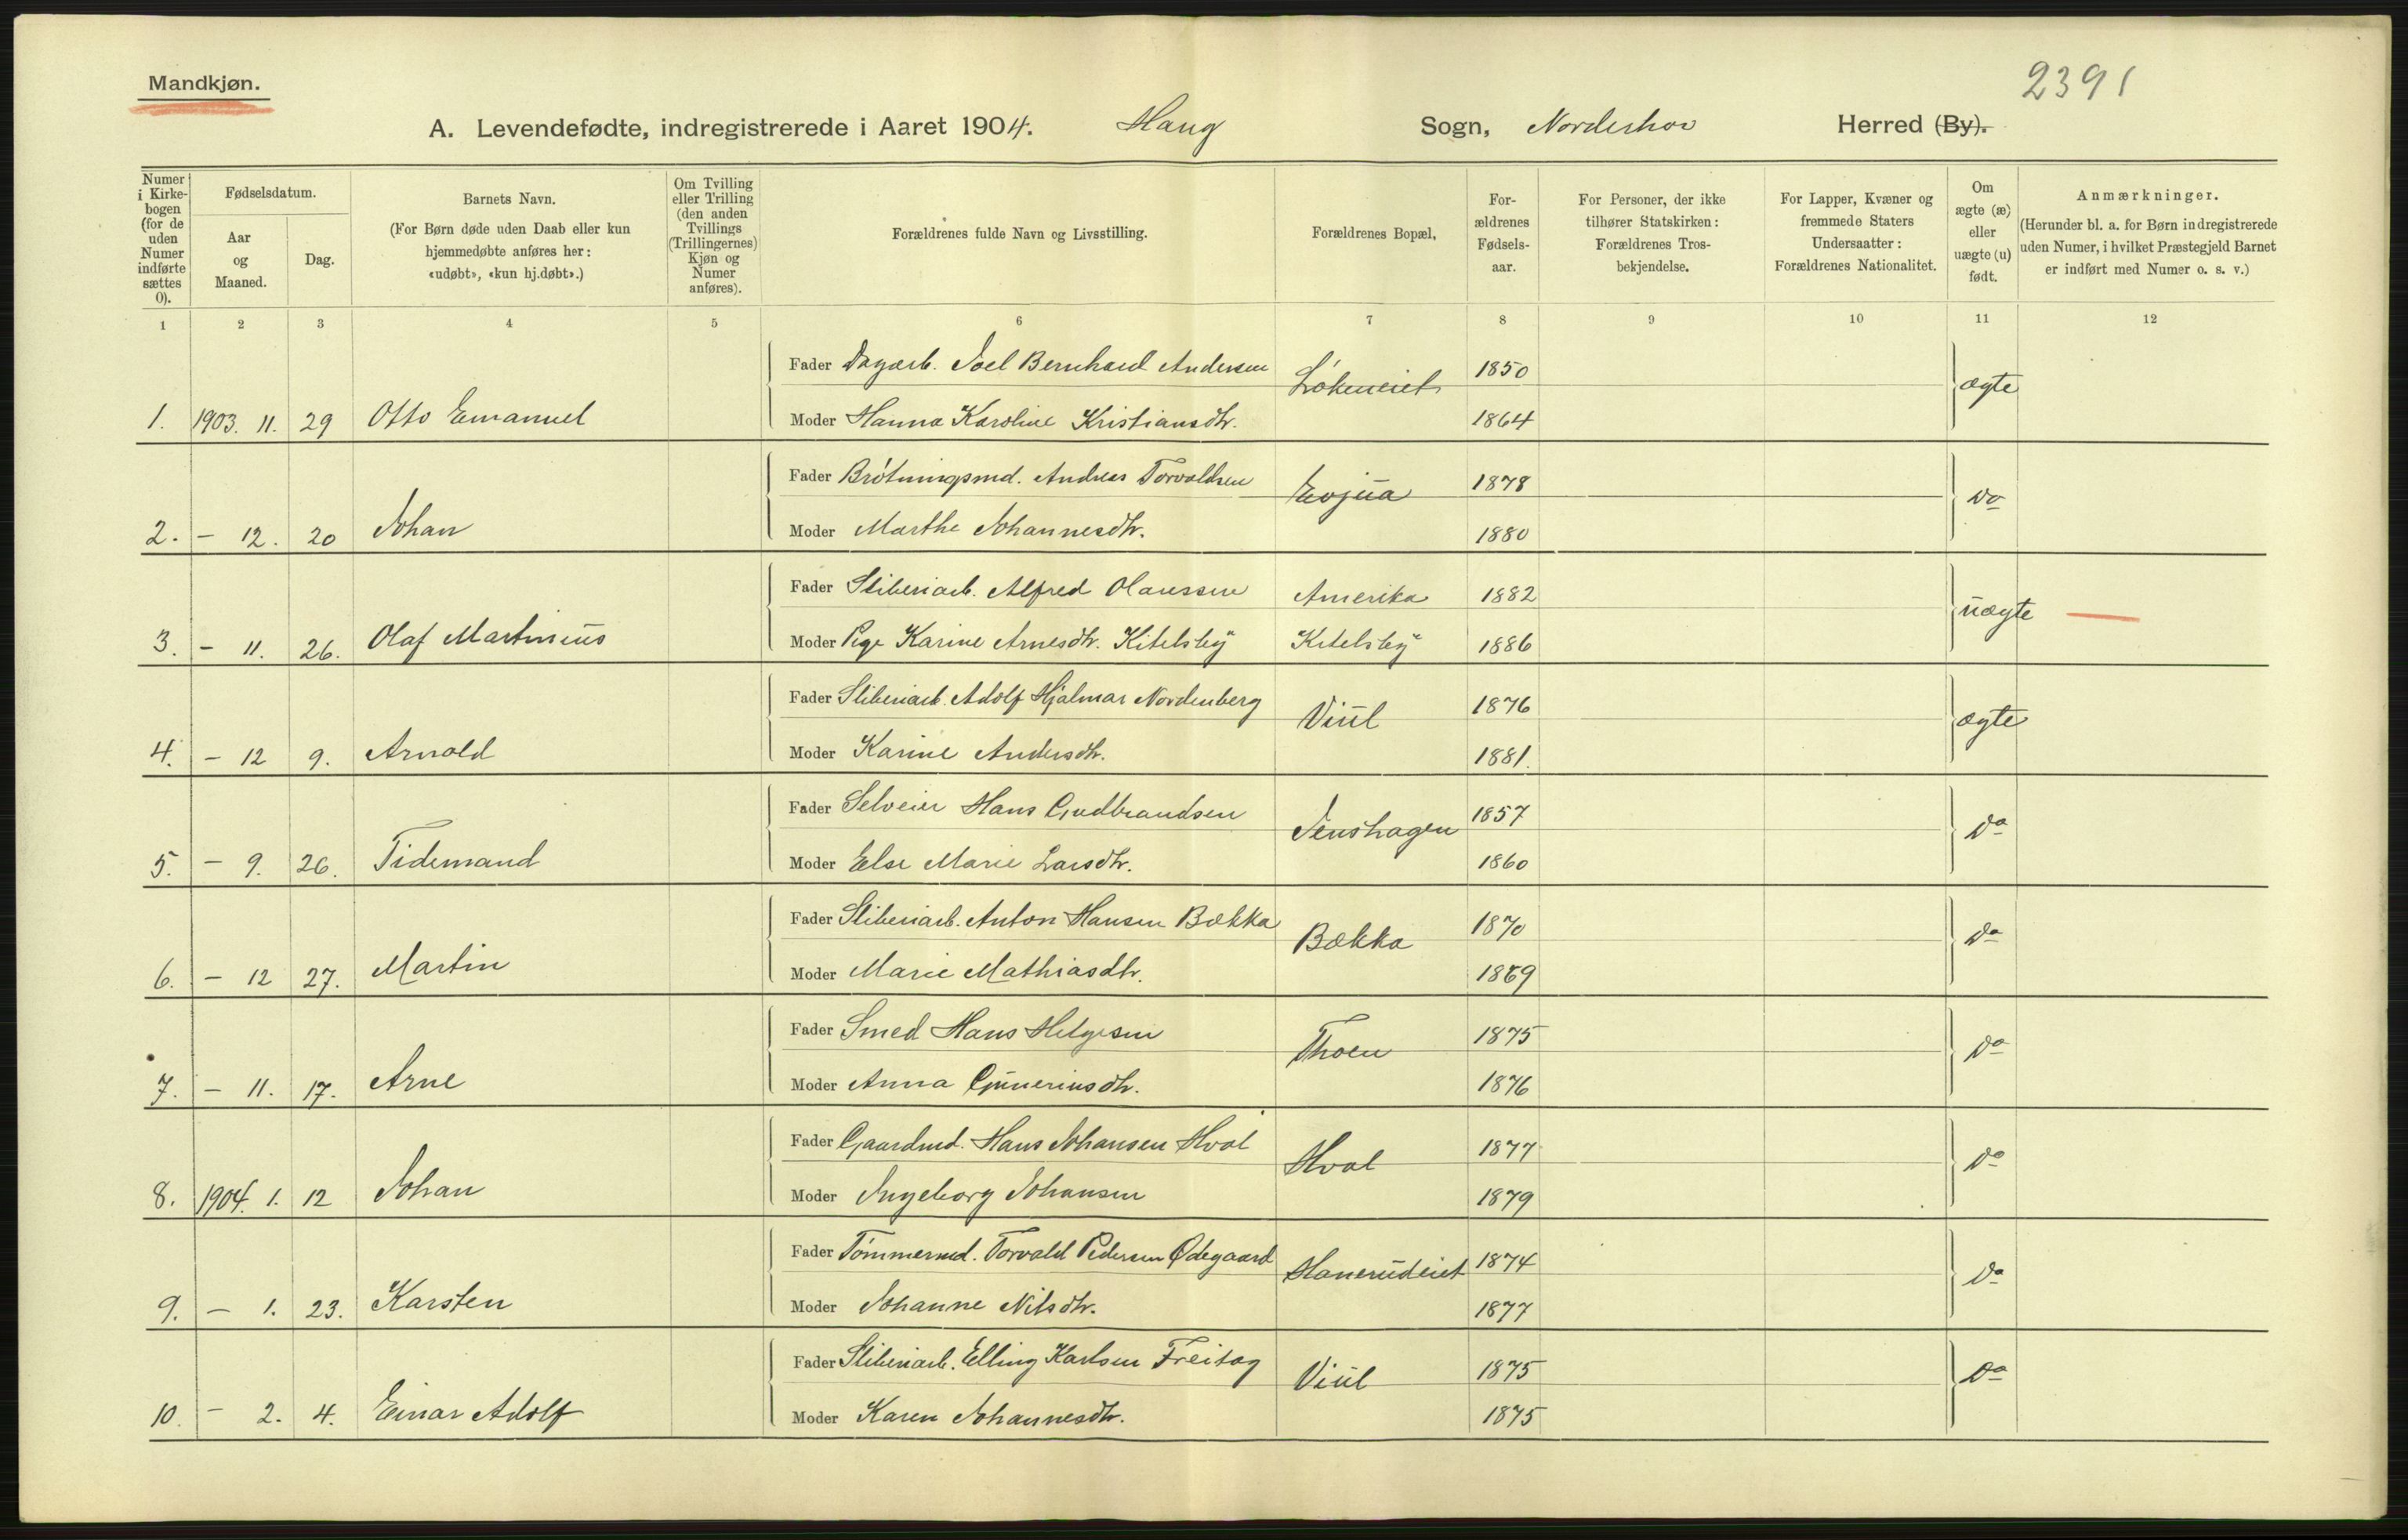 2391
Mandkjøn.
A. Levendefødte, indregistrerede i Aaret 1904. Haug Sogn, Norderhov Herred (By).
Numer i Kirkebogen (for de uden Numer indførte sættes 0).
Fødselsdatum.
Aar og Maaned.
Dag.
Barnets Navn.
(For Børn døde uden Daab eller kun hjemmedøbte anføres her: «udøbt», «kun hj.døbt».)
Om Tvilling eller Trilling (den anden Tvillings (Trillingernes) Kjøn og Numer anføres).
Forældrenes fulde Navn og Livsstilling.
Forældrenes Bopæl,
For-ældrenes Fødsels-aar.
For Personer, der ikke tilhører Statskirken: Forældrenes Tros-bekjendelse.
For Lapper, Kvæner og fremmede Staters Undersaatter: Forældrenes Nationalitet.
Om ægte (æ) eller uægte (u) født.
Anmærkninger.
(Herunder bl. a. for Børn indregistrerede uden Numer, i hvilket Præstegjeld Barnet er indført med Numer o. s. v.)
1 2 3 4 5 6 7 8 9 10 11 12
Fader Dagarb. Joel Bernhard Andersen Løkeneiet 1850 ægte
1. 1903. 11. 29 Otto Emanuel Moder Hanna Karoline Kristiansdtr. 1864
Fader Brøtningsmd. Andreas Torvaldsen Evjua 1878 do
2. - 12. 20 Johan Moder Marthe Johannesdtr. 1880
Fader Sliberiarb. Alfred Olaussen Amerika 1882 uægte
3. - 11. 26. Olaf Martinius Moder Pige Karine Arnesdtr. Kitelsby Kitelsby 1886
Fader Sliberiarb. Adolf Hjalmar Nordenberg Viul 1876 ægte
4. - 12 9. Arnold Moder Karine Andersdtr. 1881.
Fader Selveier Hans Gudbrandsen Jenshagen 1857 do
5. - 9. 26. Tidemand Moder Else Marie Larsdtr. 1860
Fader Sliberiarb. Anton Hansen Bækka Bækka 1870 do
6. - 12 27. Martin Moder Marie Mathiasdtr. 1869
Fader Smed Hans Helgesen Thoen 1875 do
7. - 11. 17. Arne Moder Anna Guneriusdtr. 1876
Fader Gaardmd. Hans Johansen Hval Hval 1877 do
8. 1904. 1. 12 Johan Moder Ingeborg Johansen 1879
Fader Tømmermd. Torvald Pedersen Ødegaard Hanerudeiet 1874 do
9. - 1. 23. Karsten Moder Johanne Nilsdtr. 1877
Fader Sliberiarb. Elling Karlsen Freitag Viul 1875 do
10. - 2. 4. Einar Adolf Moder Karen Johannesdtr. 1875